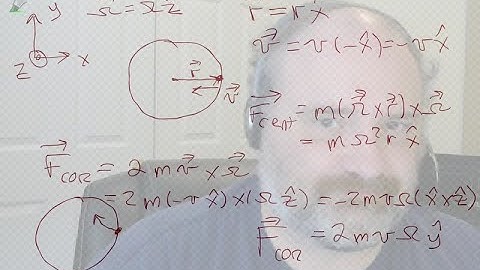 y
Ω⃗ = Ωẑ
r⃗ = r x̂
z x
r⃗
v⃗
v⃗ = v(-x̂) = -v x̂
F⃗cent = m(Ω⃗ × r⃗) × Ω⃗
= m Ω² r x̂
F⃗cor = 2 m v⃗ × Ω⃗
= 2 m (-v x̂) × (Ω ẑ) = -2 m v Ω (x̂ × ẑ)
F⃗cor = 2 m v Ω ŷ